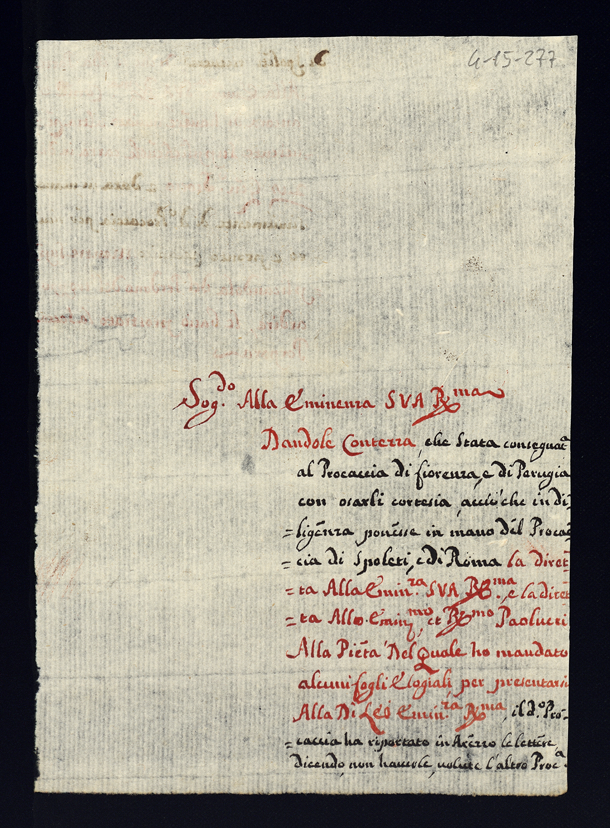 4-15-277
Sog.do Alla Eminenza SVA Rma
Dandole Contezza, che stata consegnata
al Procaccia di fiorenza, e di Perugia
con osarli cortesia, acciò che in di=
=ligenza ponesse in mano del Proca=
=cia di Spoleti, e di Roma la diret=
=ta Alla Emin.ra SVA Rma, e la diret=
=ta Allo Emin.mo et Rmo Paolucci
Alla Pietà Del Quale ho mandato
alcuni fogli Elogiali per presentarsi
Alla Di LEO Emin.ra Rma, il d.o Pro=
=caccia ha riportato in Arezzo le lettere,
dicendo, non haverle, volute l'altro Proc.a